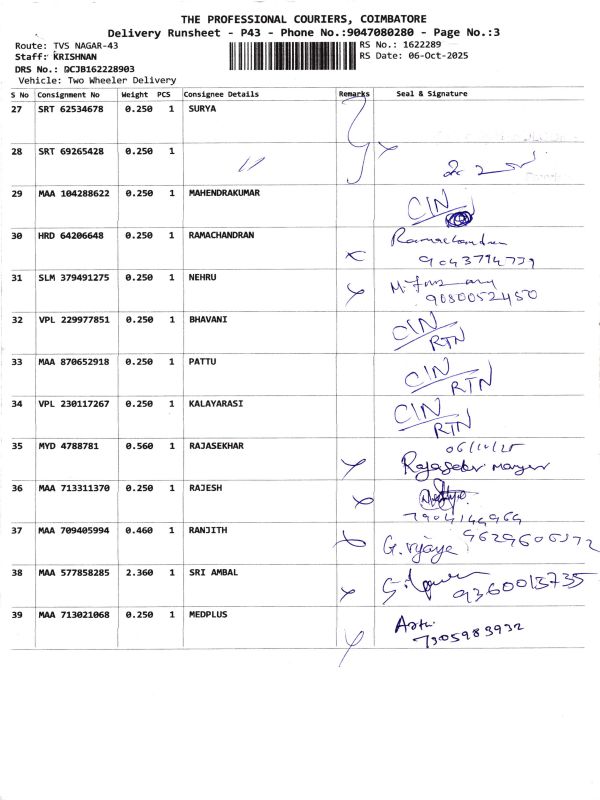 THE PROFESSIONAL COURIERS, COIMBATORE
Delivery Runsheet - P43 - Phone No.:9047080280 - Page No.:3
Route: TVS NAGAR-43 RS No.: 1622289
Staff: KRISHNAN RS Date: 06-Oct-2025
DRS No.: DCJB162228903
Vehicle: Two Wheeler Delivery
S No Consignment No Weight PCS Consignee Details Remarks Seal & Signature
27 SRT 62534678 0.250 1 SURYA
28 SRT 69265428 0.250 1 "
29 MAA 104288622 0.250 1 MAHENDRAKUMAR CIN
30 HRD 64206648 0.250 1 RAMACHANDRAN Ramachandran
9043794739
31 SLM 379491275 0.250 1 NEHRU
32 VPL 229977851 0.250 1 BHAVANI CIN
RTN
33 MAA 870652918 0.250 1 PATTU CIN
RTN
34 VPL 230117267 0.250 1 KALAYARASI CIN
RTN
35 MYD 4788781 0.560 1 RAJASEKHAR 06/10/25
36 MAA 713311370 0.250 1 RAJESH
37 MAA 709405994 0.460 1 RANJITH G. vijaya
38 MAA 577858285 2.360 1 SRI AMBAL 9360013735
39 MAA 713021068 0.250 1 MEDPLUS
7305983932